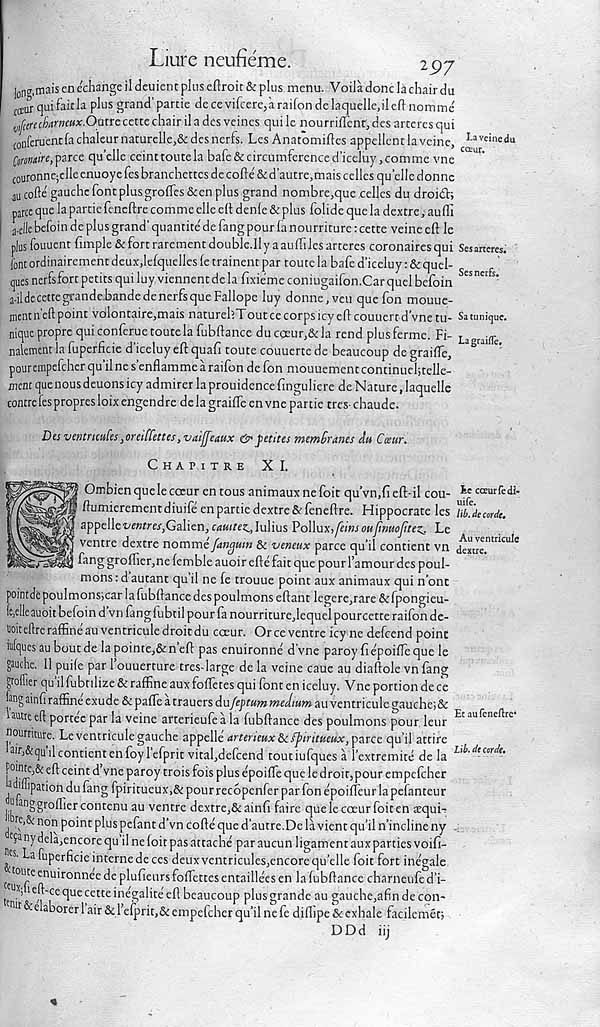 Liure neufiéme. 297
long, mais en échange il deuient plus eſtroit & plus menu. Voilà donc la chair du
cœur qui fait la plus grand' partie de ce viſcere, à raiſon de laquelle, il eſt nommé
viſcere charneux. Outre cette chair il a des veines qui le nourriſſent, des arteres qui
conſeruent ſa chaleur naturelle, & des nerfs. Les Anatomiſtes appellent la veine,
La veine du
cœur.
Coronaire, parce qu'elle ceint toute la baſe & circumference d'iceluy, comme vne
couronne; elle enuoye ſes branchettes de coſté & d'autre, mais celles qu'elle donne
au coſté gauche ſont plus groſſes & en plus grand nombre, que celles du droict;
parce que la partie ſeneſtre comme elle eſt denſe & plus ſolide que la dextre, auſſi
a-elle beſoin de plus grand' quantité de ſang pour ſa nourriture: cette veine eſt le
plus ſouuent ſimple & fort rarement double. Il y a auſſi les arteres coronaires qui
Ses arteres.
ſont ordinairement deux, leſquelles ſe trainent par toute la baſe d'iceluy: & quel-
ques nerfs fort petits qui luy viennent de la ſixiéme coniugaiſon. Car quel beſoin
Ses nerfs.
a-il de cette grande bande de nerfs que Fallope luy donne, veu que ſon mouue-
ment n'eſt point volontaire, mais naturel? Tout ce corps icy eſt couuert d'vne tu-
Sa tunique.
nique propre qui conſerue toute la ſubſtance du cœur, & la rend plus ferme. Fi-
nalement la ſuperficie d'iceluy eſt quaſi toute couuerte de beaucoup de graiſſe,
La graiſſe.
pour empeſcher qu'il ne s'enflamme à raiſon de ſon mouuement continuel; telle-
ment que nous deuons icy admirer la prouidence ſinguliere de Nature, laquelle
contre ſes propres loix engendre de la graiſſe en vne partie tres-chaude.
Des ventricules, oreillettes, vaiſſeaux & petites membranes du Cœur.
CHAPITRE XI.
COmbien que le cœur en tous animaux ne ſoit qu'vn, ſi eſt-il cou-
Le cœur ſe di-
uiſe.
ſtumierement diuiſé en partie dextre & ſeneſtre. Hippocrate les
lib. de corde.
appelle ventres, Galien, cauitez, Iulius Pollux, ſeins ou ſinuoſitez. Le
ventre dextre nommé ſanguin & veneux parce qu'il contient vn
Au ventricule
dextre.
ſang groſſier, ne ſemble auoir eſté fait que pour l'amour des poul-
mons: d'autant qu'il ne ſe trouue point aux animaux qui n'ont
point de poulmons; car la ſubſtance des poulmons eſtant legere, rare & ſpongieu-
ſe, elle auoit beſoin d'vn ſang ſubtil pour ſa nourriture, lequel pour cette raiſon de-
uoit eſtre raffiné au ventricule droit du cœur. Or ce ventre icy ne deſcend point
iuſques au bout de la pointe, & n'eſt pas enuironné d'vne paroy ſi époiſſe que le
gauche. Il puiſe par l'ouuerture tres-large de la veine caue au diaſtole vn ſang
groſſier qu'il ſubtilize & raffine aux foſſetes qui ſont en iceluy. Vne portion de ce
ſang ainſi raffiné exude & paſſe à trauers du ſeptum medium au ventricule gauche; &
l'autre eſt portée par la veine arterieuſe à la ſubſtance des poulmons pour leur
Et au ſeneſtre.
nourriture. Le ventricule gauche appellé arterieux & ſpiritueux, parce qu'il attire
l'air, & qu'il contient en ſoy l'eſprit vital, deſcend tout iuſques à l'extremité de la
Lib. de corde.
pointe, & eſt ceint d'vne paroy trois fois plus époiſſe que le droit, pour empeſcher
la diſſipation du ſang ſpiritueux, & pour recõpenſer par ſon époiſſeur la peſanteur
du ſang groſſier contenu au ventre dextre, & ainſi faire que le cœur ſoit en æqui-
libre, & non point plus peſant d'vn coſté que d'autre. De là vient qu'il n'incline ny
deça ny delà, encore qu'il ne ſoit pas attaché par aucun ligament aux parties voiſi-
nes. La ſuperficie interne de ces deux ventricules, encore qu'elle ſoit fort inégale
& toute enuironnée de pluſieurs foſſettes entaillées en la ſubſtance charneuſe d'i-
ceux; ſi eſt-ce que cette inégalité eſt beaucoup plus grande au gauche, afin de con-
tenir & élaborer l'air & l'eſprit, & empeſcher qu'il ne ſe diſſipe & exhale facilemẽt;
DDd iij